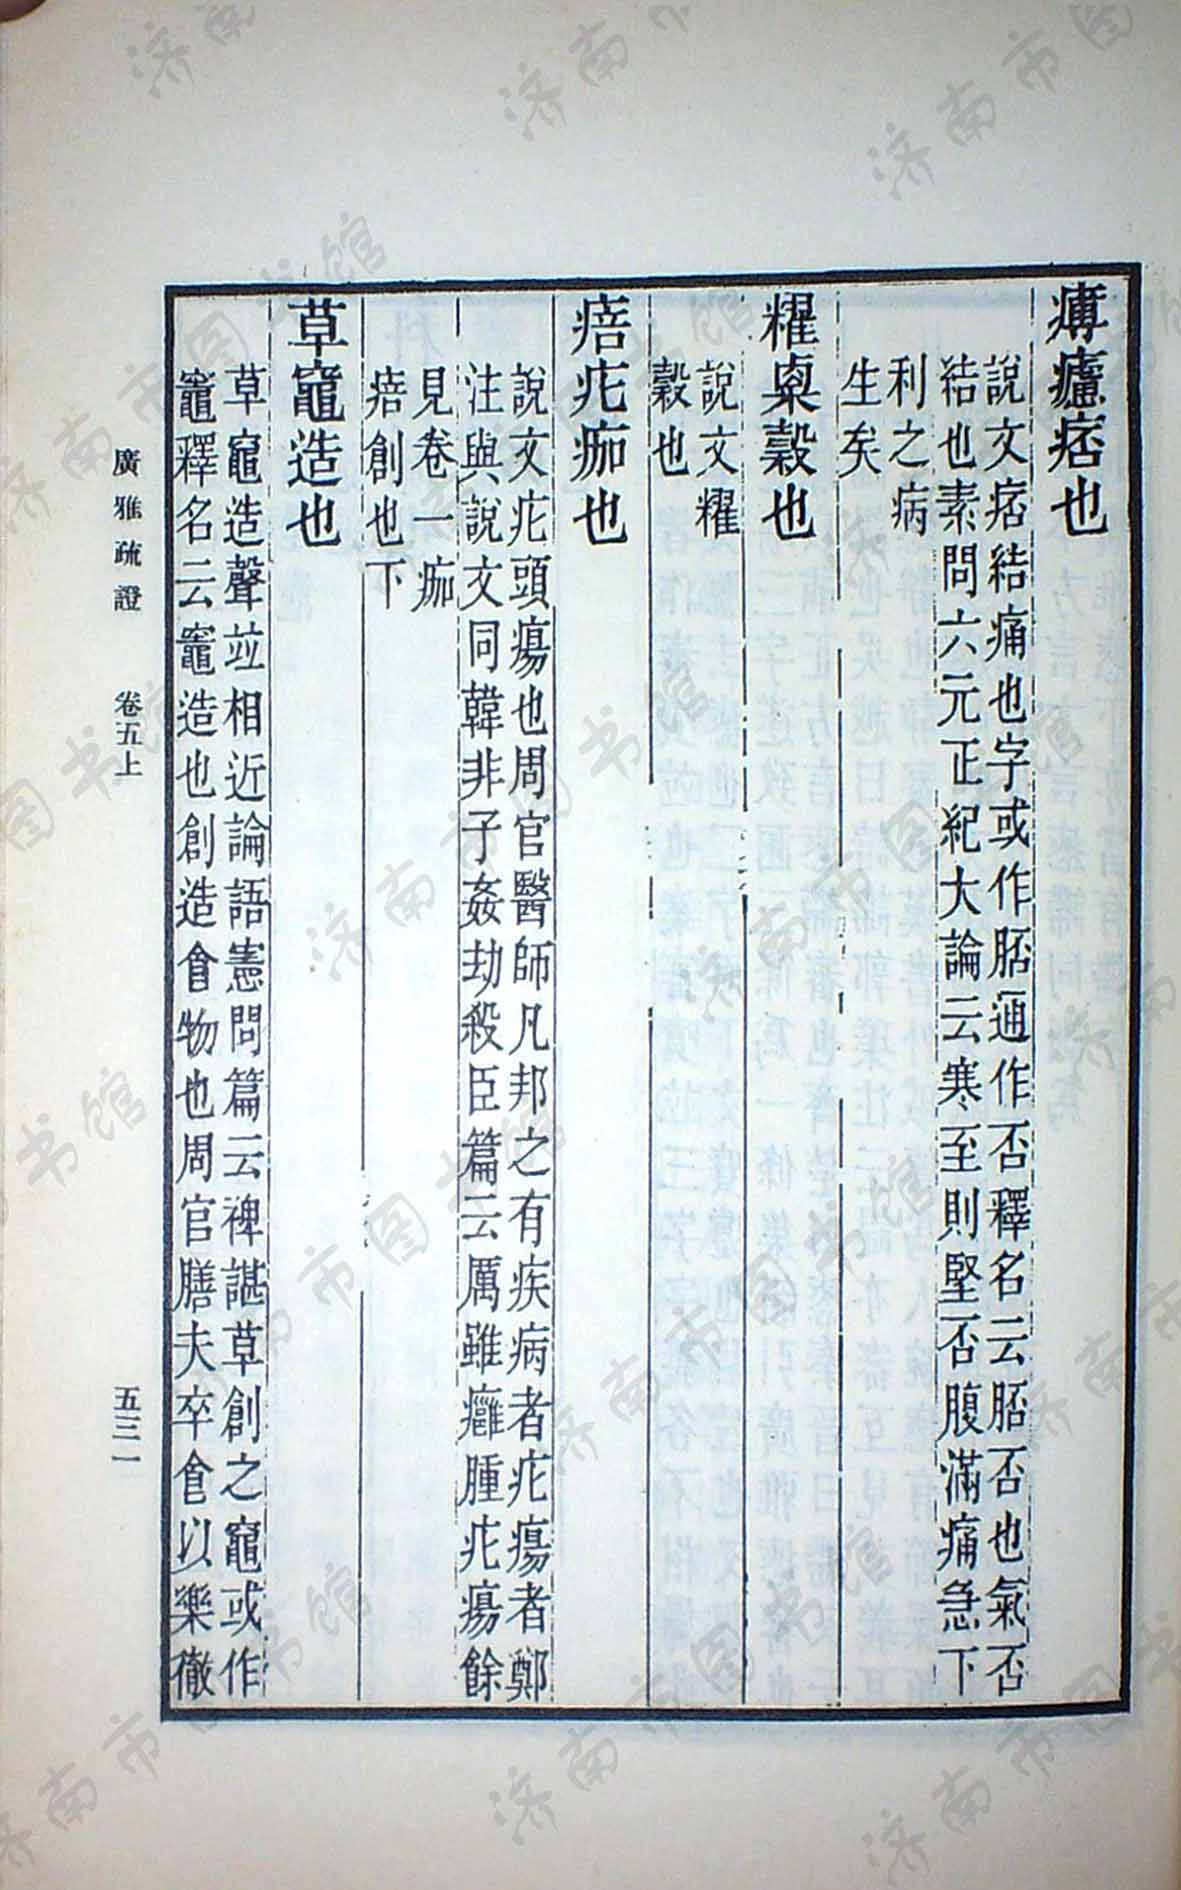 痡癁痞也
說文痞結痛也字或作脴通作否釋名云脴否也氣否
結也素問六元正紀大論云寒至則堅否腹滿痛急下
利之病
生矣
糶㮚穀也
說文糶
穀也
㾦疕痂也
說文疕頭瘍也周官醫師凡邦之有疾病者疕瘍者鄭
注與說文同韓非子姦劫殺臣篇云厲雖癰腫疕瘍餘
見卷一痂
㾦創也下
草竈造也
草竈造聲竝相近論語憲問篇云裨諶草創之竈或作
竈釋名云竈造也創造食物也周官膳夫卒食以樂徹
廣雅疏證 卷五上 五三一
濟南市图书馆